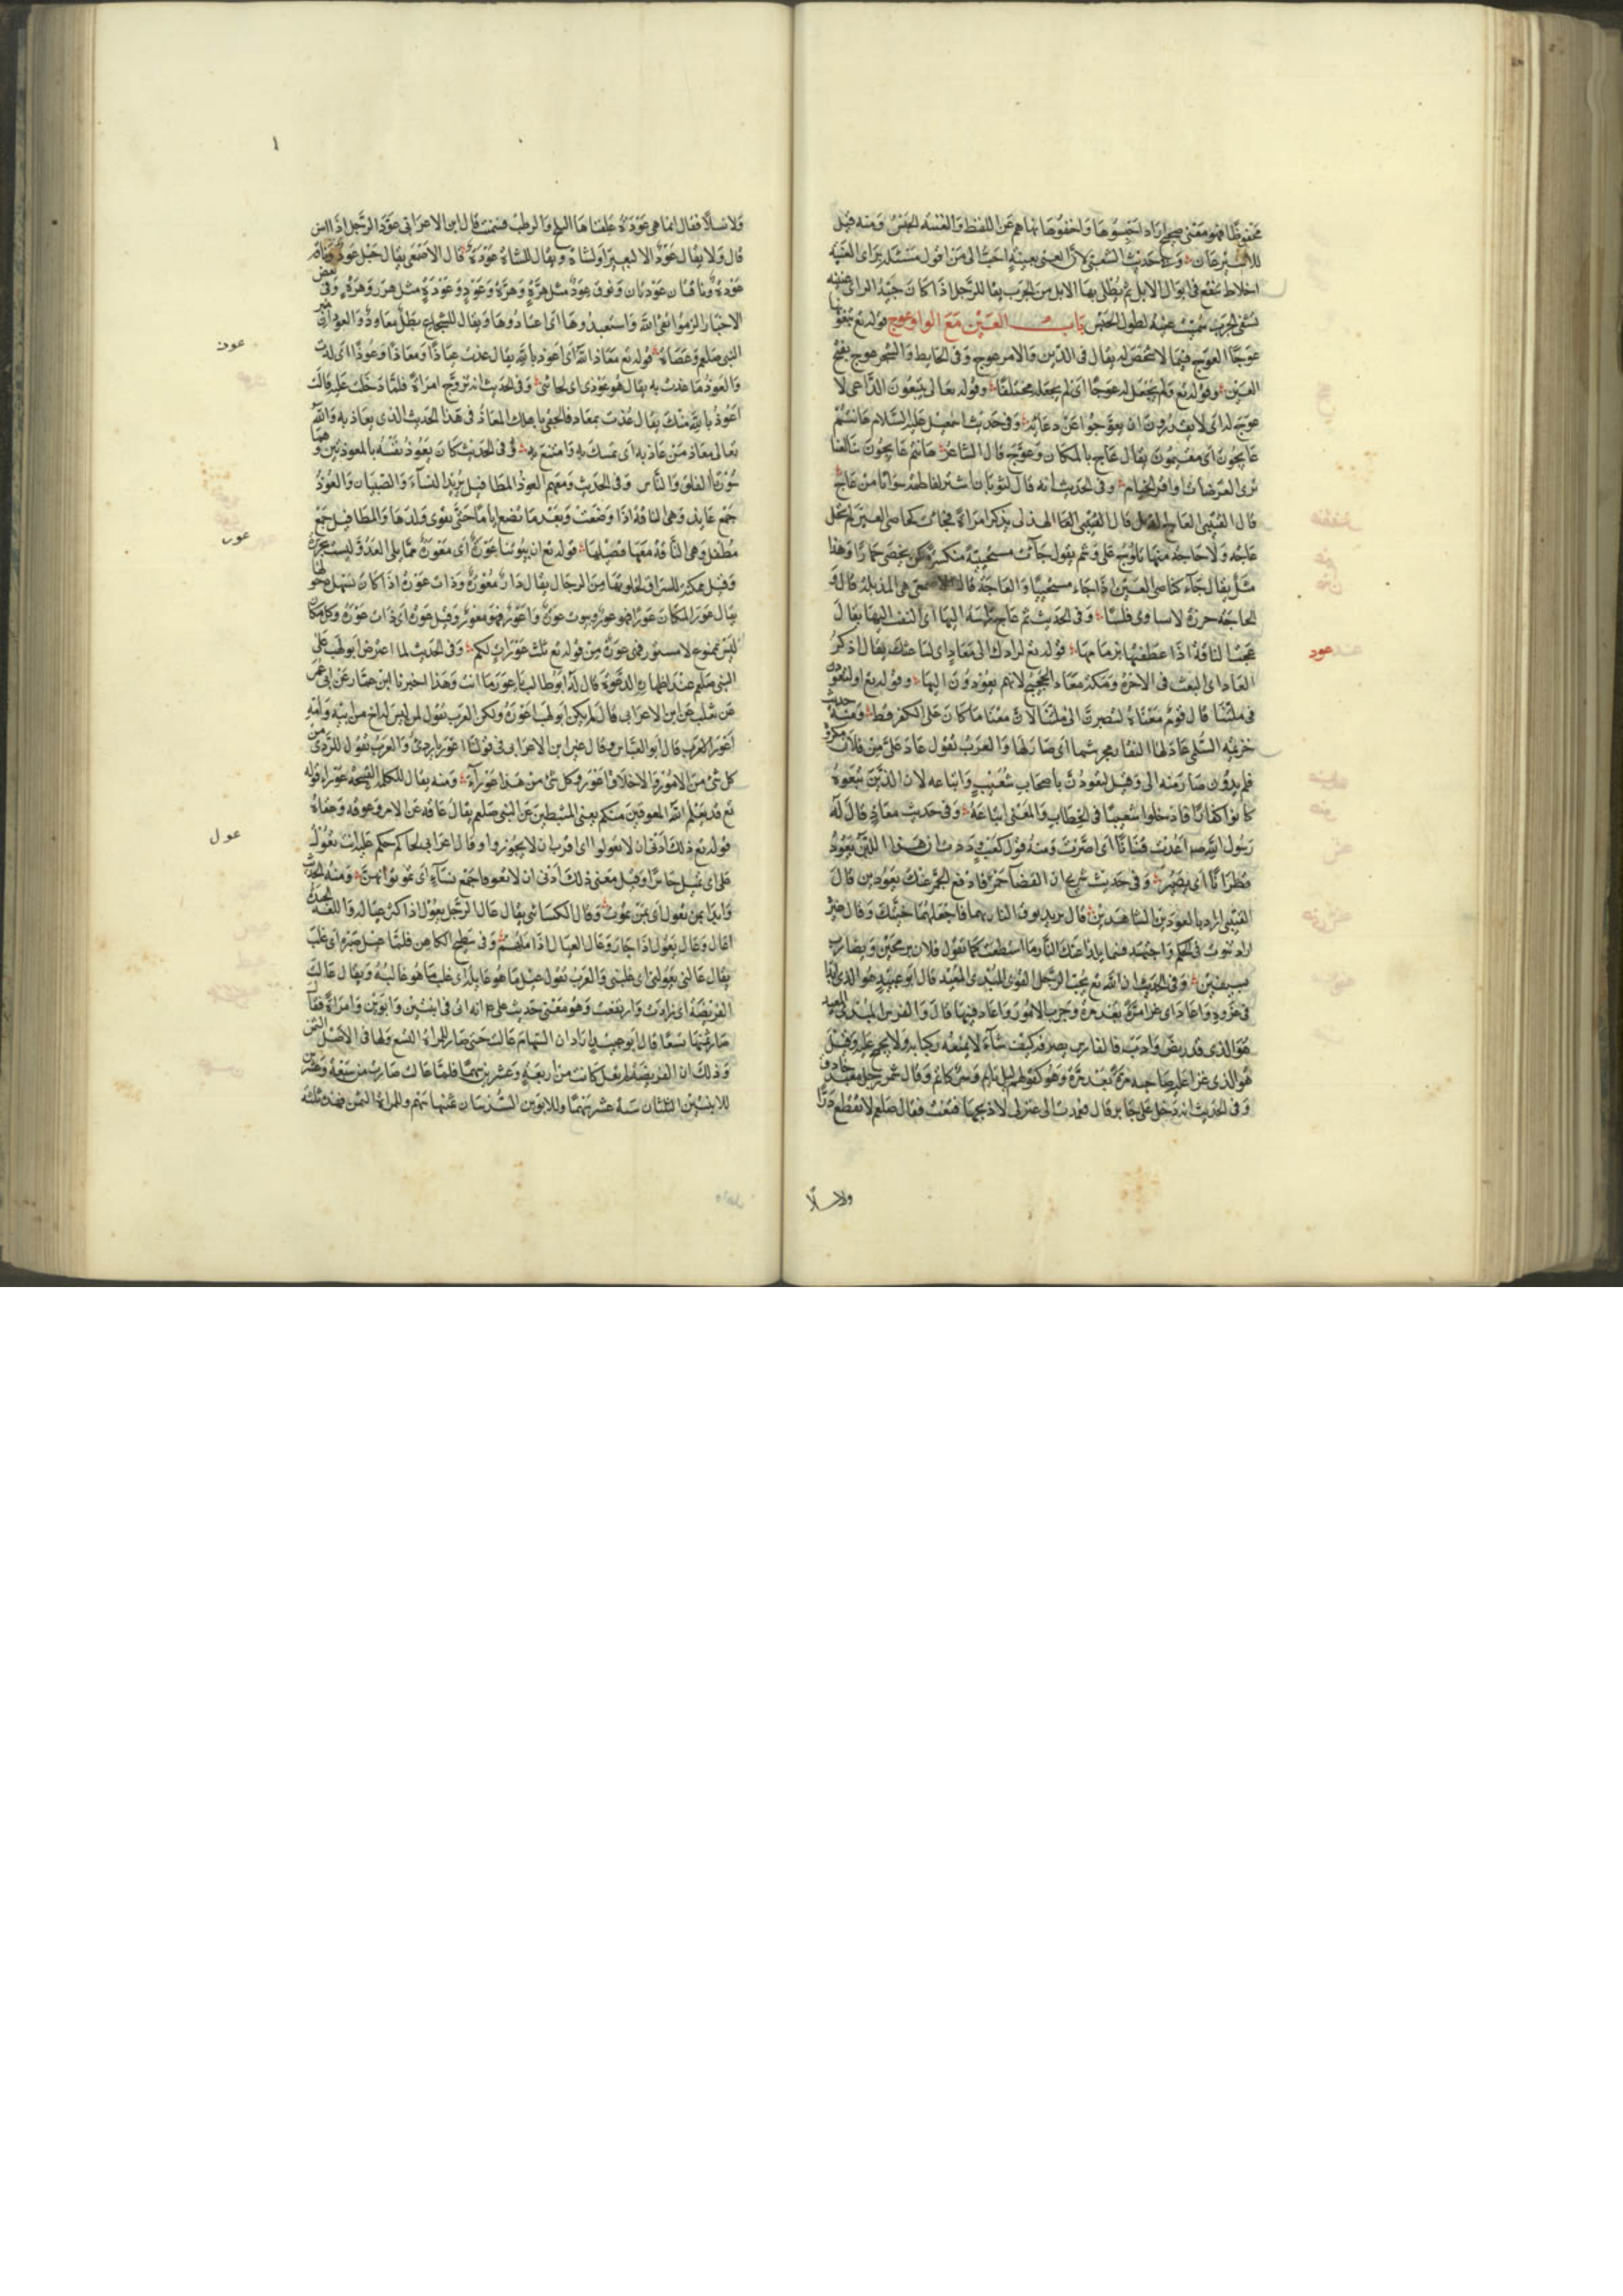 محفوظا فهو معنى صحيح اراد احبسوها واخفوها نهاهم عن اللفظ والعنسه الحبس ومنه قيل
للاسير عان وفي حديث الشعبي لان اتعنى بعنية احب الى من ان اقول مسئلة برأى العنية
اخلاط تنقع في ابوال الابل ثم تطلى بها الابل من الجرب يقال للرجل اذا كان جيد الراى عنيته
تشفى الجرب سميت عنية لطول الحبس باب العين مع الواو عوج قوله تع تبغونها
عوجا العوج فيما لا شخص له يقال في الدين والامر عوج وفي الحايط والشجر عوج بفتح
العين وقوله تع ولم يجعل له عوجا اى لم يجعله مختلفا وقوله تعالى يتبعون الداعى لا
عوج له اى لا يقدرون ان يعوجوا عن دعائه وفي حديث اسمعيل عليه السلام هل انتم
عايجون اى مقيمون يقال عاج بالمكان وعوج قال الشاعر هل انتم عايجون بنا لعنا
نرى العرصات او اثر الخيام وفي الحديث انه قال لثوبان اشتر لفاطمة سوارا من عاج
قال القتيبي العاج الذبل قال القتيبي قال الهذلى يذكر امراة فجاءت كخاصى العير لم تحل
عاجه ولا حاجة منها تلوح على وشم يقول جآت مستحيية منكسرة كمن يخصى حمارا وهذا
مثل يقال جآء كخاصى العير اذا جاء مستحييا والعاجة قال الاصمعى هى الذبلة قال و
الحاجة خرزة لا تساوى فلسا وفي الحديث ثم عاج راسه اليها اى التفت اليها يقال
عجت الناقة اذا عطفتها بزمامها قوله تع لرادك الى معاد اى لباعثك يقال اذكر
المعاد اى البعث في الاخرة ومكة معاد الحجيج لانهم يعودون اليها وقوله تع او لتعودن
في ملتنا قال قوم معناه لتصيرن الى ملتنا لان شعيبا ما كان على الكفر قط ومنه حديث
خزيمة السلمى عاد لها النقاد مجرنثما اى صار لها والعرب تقول عاد على من فلان مكروه
فلم يدوك صار منه الى وقيل لتعودن يا اصحاب شعيب واتباعه لان الذين تبعوه
كانوا كفارا فادخلوا شعيبا في الخطاب والمعنى اتباعه وفي حديث معاذ قال له
رسول الله صلعم اعدت فتانا اى اصرت ومنه قول كعب وددت ان هذا اللبن يعود
قطرانا اى يصير وفي حديث شريح ان القضآ جمر فادفع الجمر عنك بعودين قال
القتيبي اراد بالعودين الشاهدين قال يريد توق النار بهما فاجعلهما جنتك وقال غيره
اراد تثبت في الحكم واجتهد فيما يدرا عنك النار ما استطعت كما تقول فلان يرمى بحجرين ويضارب
بسيفين وفي الحديث ان الله تع يحب الرجل القوى المبدى المعيد قال ابو عبيد هو الذى ابدا
في غزوه واعاد اى غزا مرة بعد مرة وجرب الامور واعاد فيها قال والفرس المبدى المعيد
هو الذى قد ريض وادب فالفارس يصرفه كيف شآء لا يمنعه ركابه ولا يجمح عليه وقيل
هو الذى غزا عليه صاحبه مرة بعد مرة وهو كقولهم ليل نايم وسر كاتم وقال شمر رجل معيد حاذق
وفي الحديث انه دخل على جابر قال فعمدت الى عنز لى لاذبحها فثغت فقال صلعم لا تقطع درا
ولا نسلا
عود
ولا نسلا فقال انما هى عودة علفناها البلح والرطب فسمنت قال ابن الاعرابى عود الرجل اذا اسن
قال ولا يقال عود الا لبعير او لشاة ويقال للشاة عودة قال الاصمعى يقال جمل عود وناقة
عودة وناقتان عودتان ونوق عود مثل هرة وهرر وعود وعودة مثل هر وهررة وفي بعض
الاخبار الزموا تقى الله واستعيدوها اى اعتادوها ويقال للشجاع بطل معاود
النبى صلعم وعصاه قوله تع معاذ الله اى اعوذ بالله يقال عذت عياذا ومعاذا وعوذا اى لذت
والعوذ ما عذت به يقال هو عوذى اى لجائى وفي الحديث انه تزوج امراة فلما دخلت عليه قالت
اعوذ بالله منك يقال عذت بمعاذ فالحقى باهلك المعاذ في هذا الحديث الذى يعاذ به والله
تعالى معاذ من عاذ به اى تمسك به وامتنع به وفي الحديث كان يعوذ نفسه بالمعوذتين وهما
سورتا الفلق والناس وفي الحديث ومعهم العوذ المطافيل يريد النسآء والصبيان والعوذ
جمع عايذ وهى الناقة اذا وضعت وبعد ما تضع اياما حتى يقوى ولدها والمطافيل جمع
مطفل وهى الناقة معها فصيلها قوله تع ان بيوتنا عورة اى معورة مما يلى العدو ليست بحريزة
وقيل ممكنة للسراق لخلوها من الرجال يقال دار معورة وذات عورة اذا كان يسهل دخولها
يقال عور المكان عورا فهو عور وبيوت عورة واعور فهو معور وقيل عورة اى ذات عورة وكل مكان
ليس بممنوع لا مستور فهى عورة من قوله تع ثلث عورات لكم وفي الحديث لما اعترض ابو لهب على
النبى صلعم عند اظهاره الدعوة قال له ابو طالب يا اعور ما انت وهذا اخبرنا ابن عمار عن ابى عمر
عن ثعلب عن ابن الاعرابى قال لم يكن ابو لهب اعور ولكن العرب تقول لمن ليس له اخ من ابيه وامه
اعور قال ابو العباس وقال غير ابن الاعرابى في قولنا اعور يا ردى والعرب تقول للردى من
كل شى من الامور والاخلاق اعور وكل شى من هذا عورآء ومنه يقال للكلمة القبيحة عورا قوله
تع قد يعلم الله المعوقين منكم يعنى المثبطين عن النبى صلعم يقال عاقه عن الامر وعوقه وعقاه
قوله تع ذلك ادنى ان لا تعولوا اى اقرب ان لا تجوروا وقال اعرابى لحاكم حكم عليه انت تعول
على اى تميل جايرا وقيل معنى ذلك ادنى ان لا تعولوا جمع نسآء اى تمونوا انهن ومنه الحديث
وابدا بمن تعول اى بمن تمون وقال الكسائى يقال عال الرجل يعول اذا كثر عياله واللغة الجيدة
اعال وعال يعول اذا جار وعال العيال اذا مانهم وفي سطيح الكاهن فلما عيل صبره اى غلب
يقال عالنى يعولنى اى غلبنى والعرب تقول عيل ما هو عايله اى غلب ما هو غالبه ويقال عالت
الفريضة اى زادت وارتفعت وهو معنى حديث على انه اتى في ابنتين وابوين وامراة فقال
صار ثمنها تسعا قال ابو عبيد اراد ان السهام عالت حتى صار للمراة التسع ولها في الاصل الثمن
وذلك ان الفريضة لو لم تعل كانت من اربعة وعشرين سهما فلما عالت صارت من سبعة وعشرين
للابنتين الثلثان ستة عشر سهما وللابوين السدسان ثمنيه اسهم وللمراة الثمن فهذه ثلثة
عوذ
عور
عول